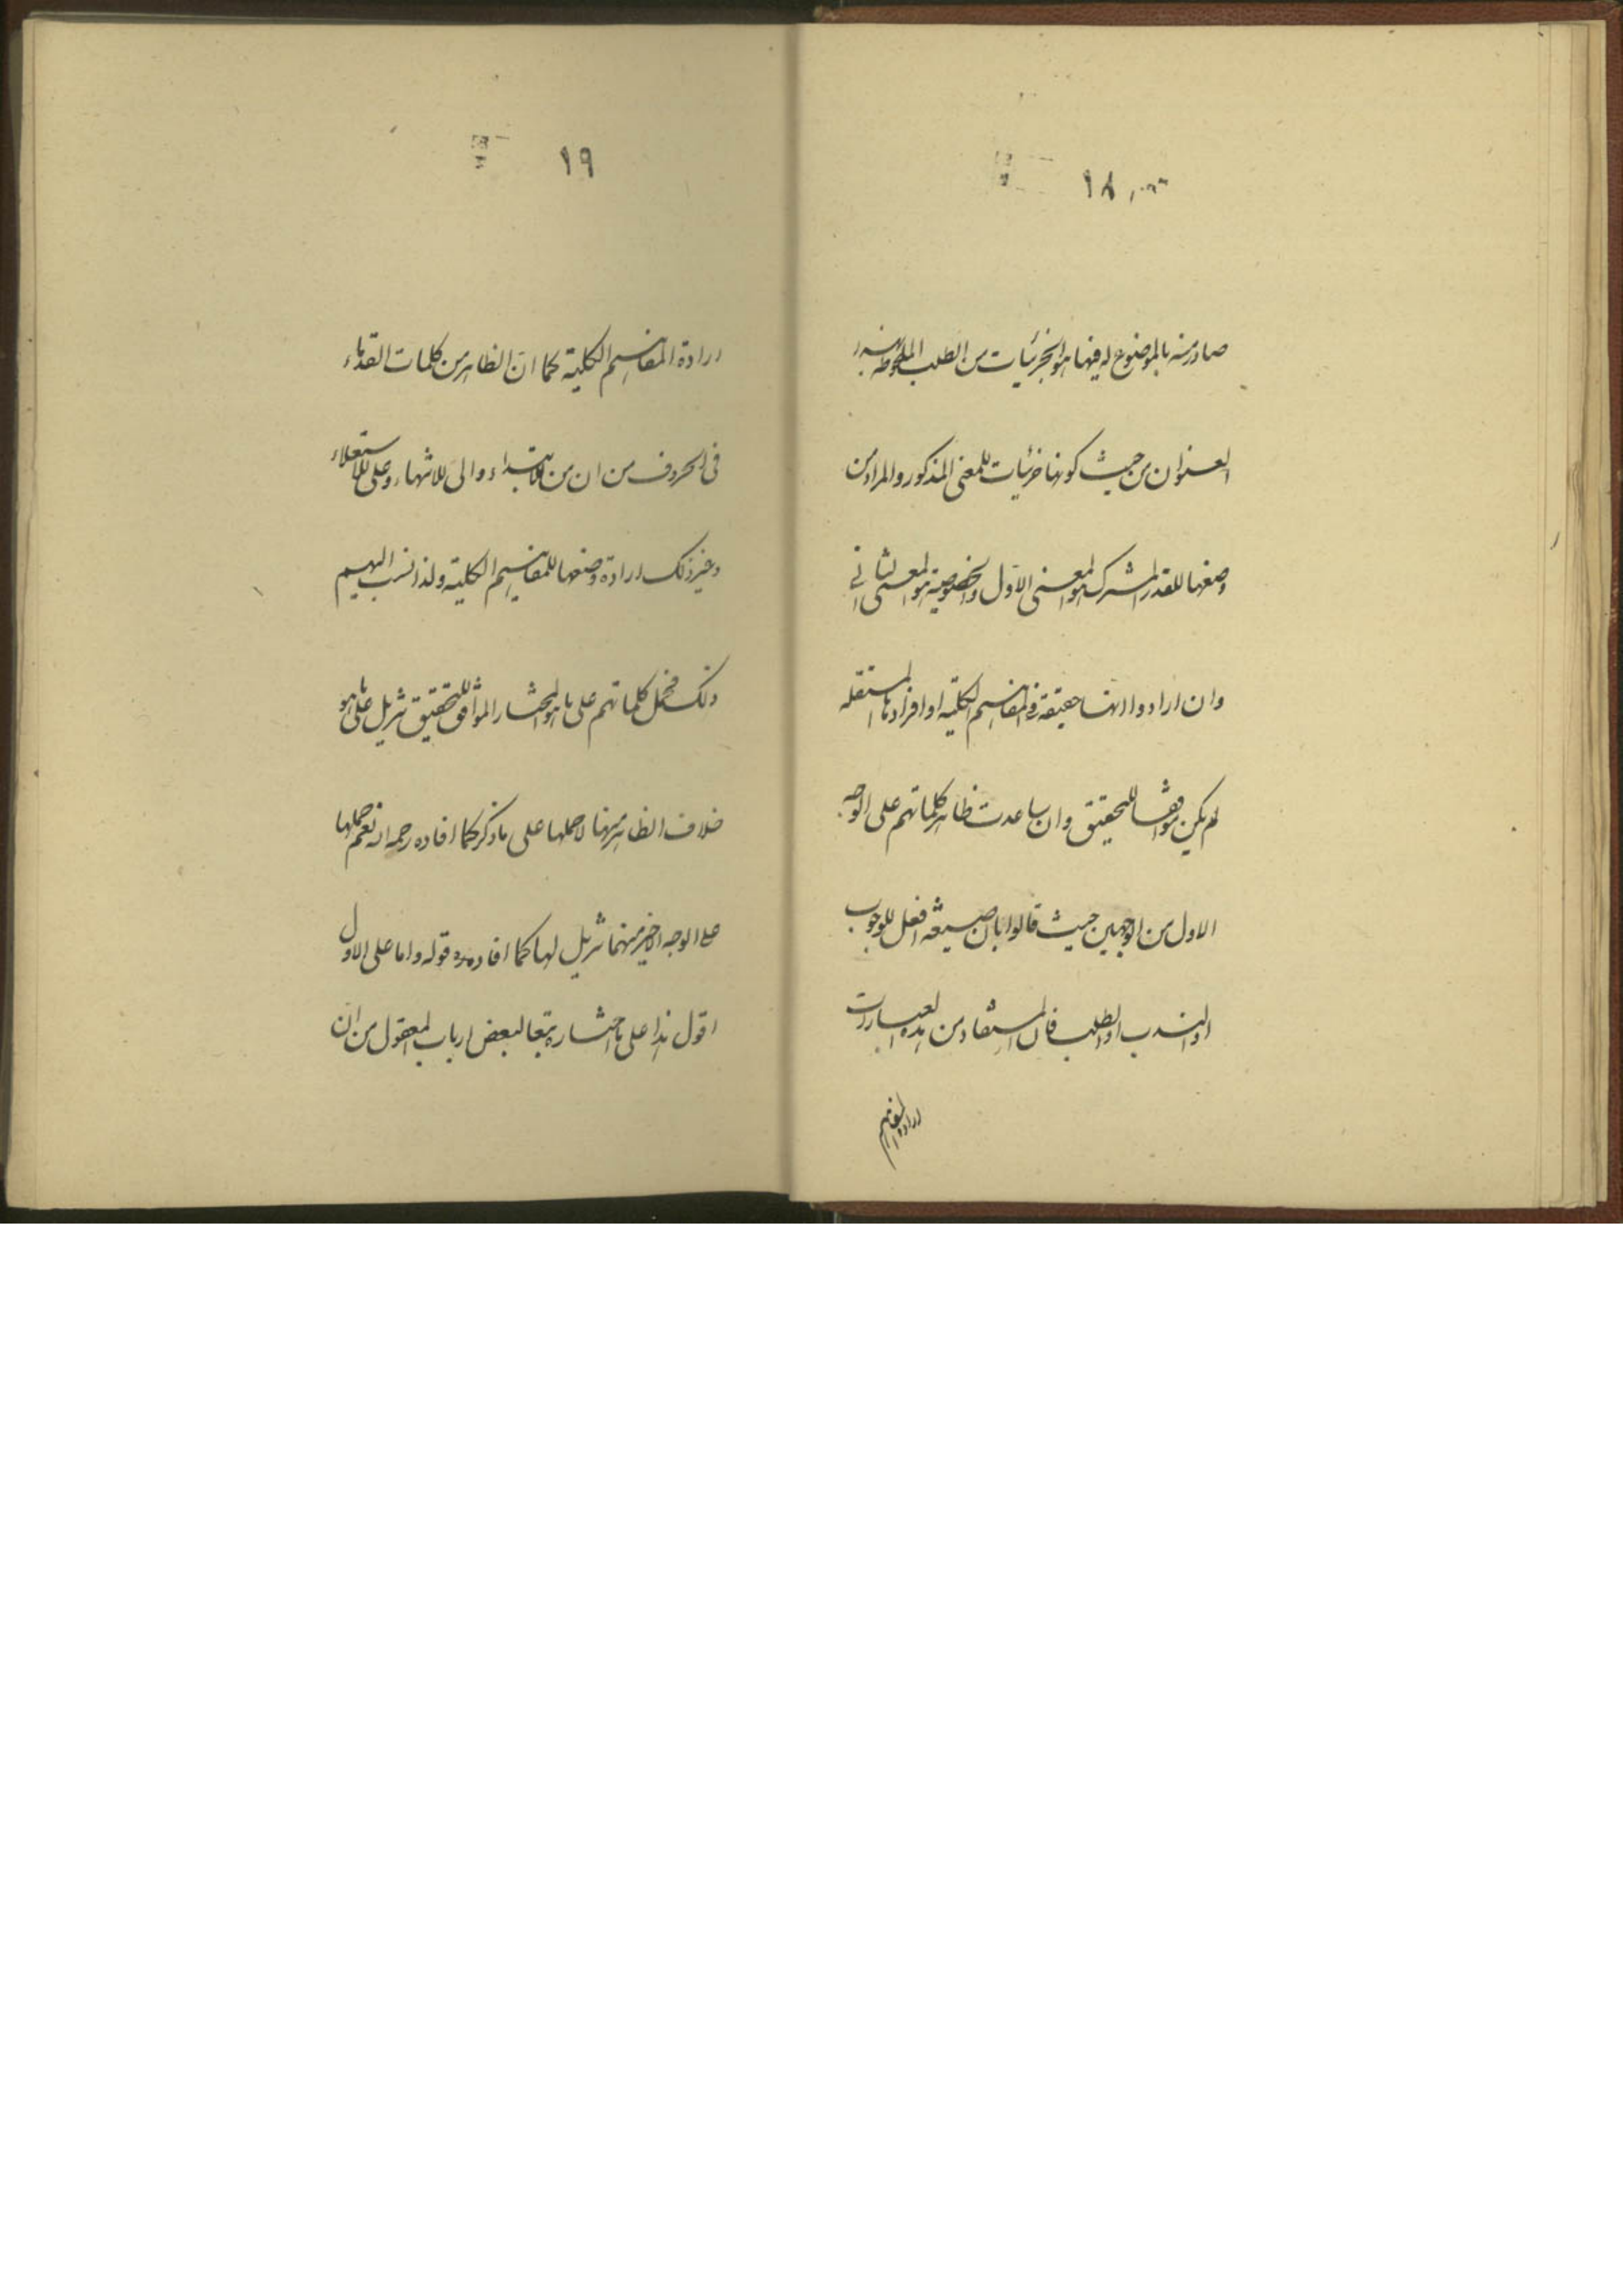 ١٨
صادرمنه بالموضوع له فيها هو الجزئيات من الطلب الملحوظة بهذا
العنوان من حيث كونها جزئيات للمعنى المذكور والمراد من
وضعها للقدر المشترك هو المعنى الاول وبخصوصية هو المعنى الثاني
وان ارادوا انها حقيقة في المفاهيم الكلية او افرادها المستقله
لم يكن موافقا للتحقيق وان ساعدت ظاهر كلماتهم على الوجه
الاول من الوجهين حيث قالوا بان صيغة افعل للوجوب
او الندب او الطلب فان المستفاد من هذه العبارات
ارادة المفاهيم
١٩
ارادة المفاهيم الكلية كما ان الظاهر من كلمات القدماء
فى الحروف من ان من للابتداء والى للانتهاء وعلى للاستعلاء
وغير ذلك ارادة وضعها للمفاهيم الكلية ولذا نسب اليهم
ذلك فحمل كلماتهم على ما هو المختار الموافق للتحقيق تنزيل على ما هو
خلاف الظاهر منها لا حملها على ما ذكر كما افاده رحمه الله نعم حملها
على الوجه الاخير منهما تنزيل لها كما افاده قوله واما على الاول
اقول هذا على ما اختاره تبعا لبعض ارباب المعقول من ان